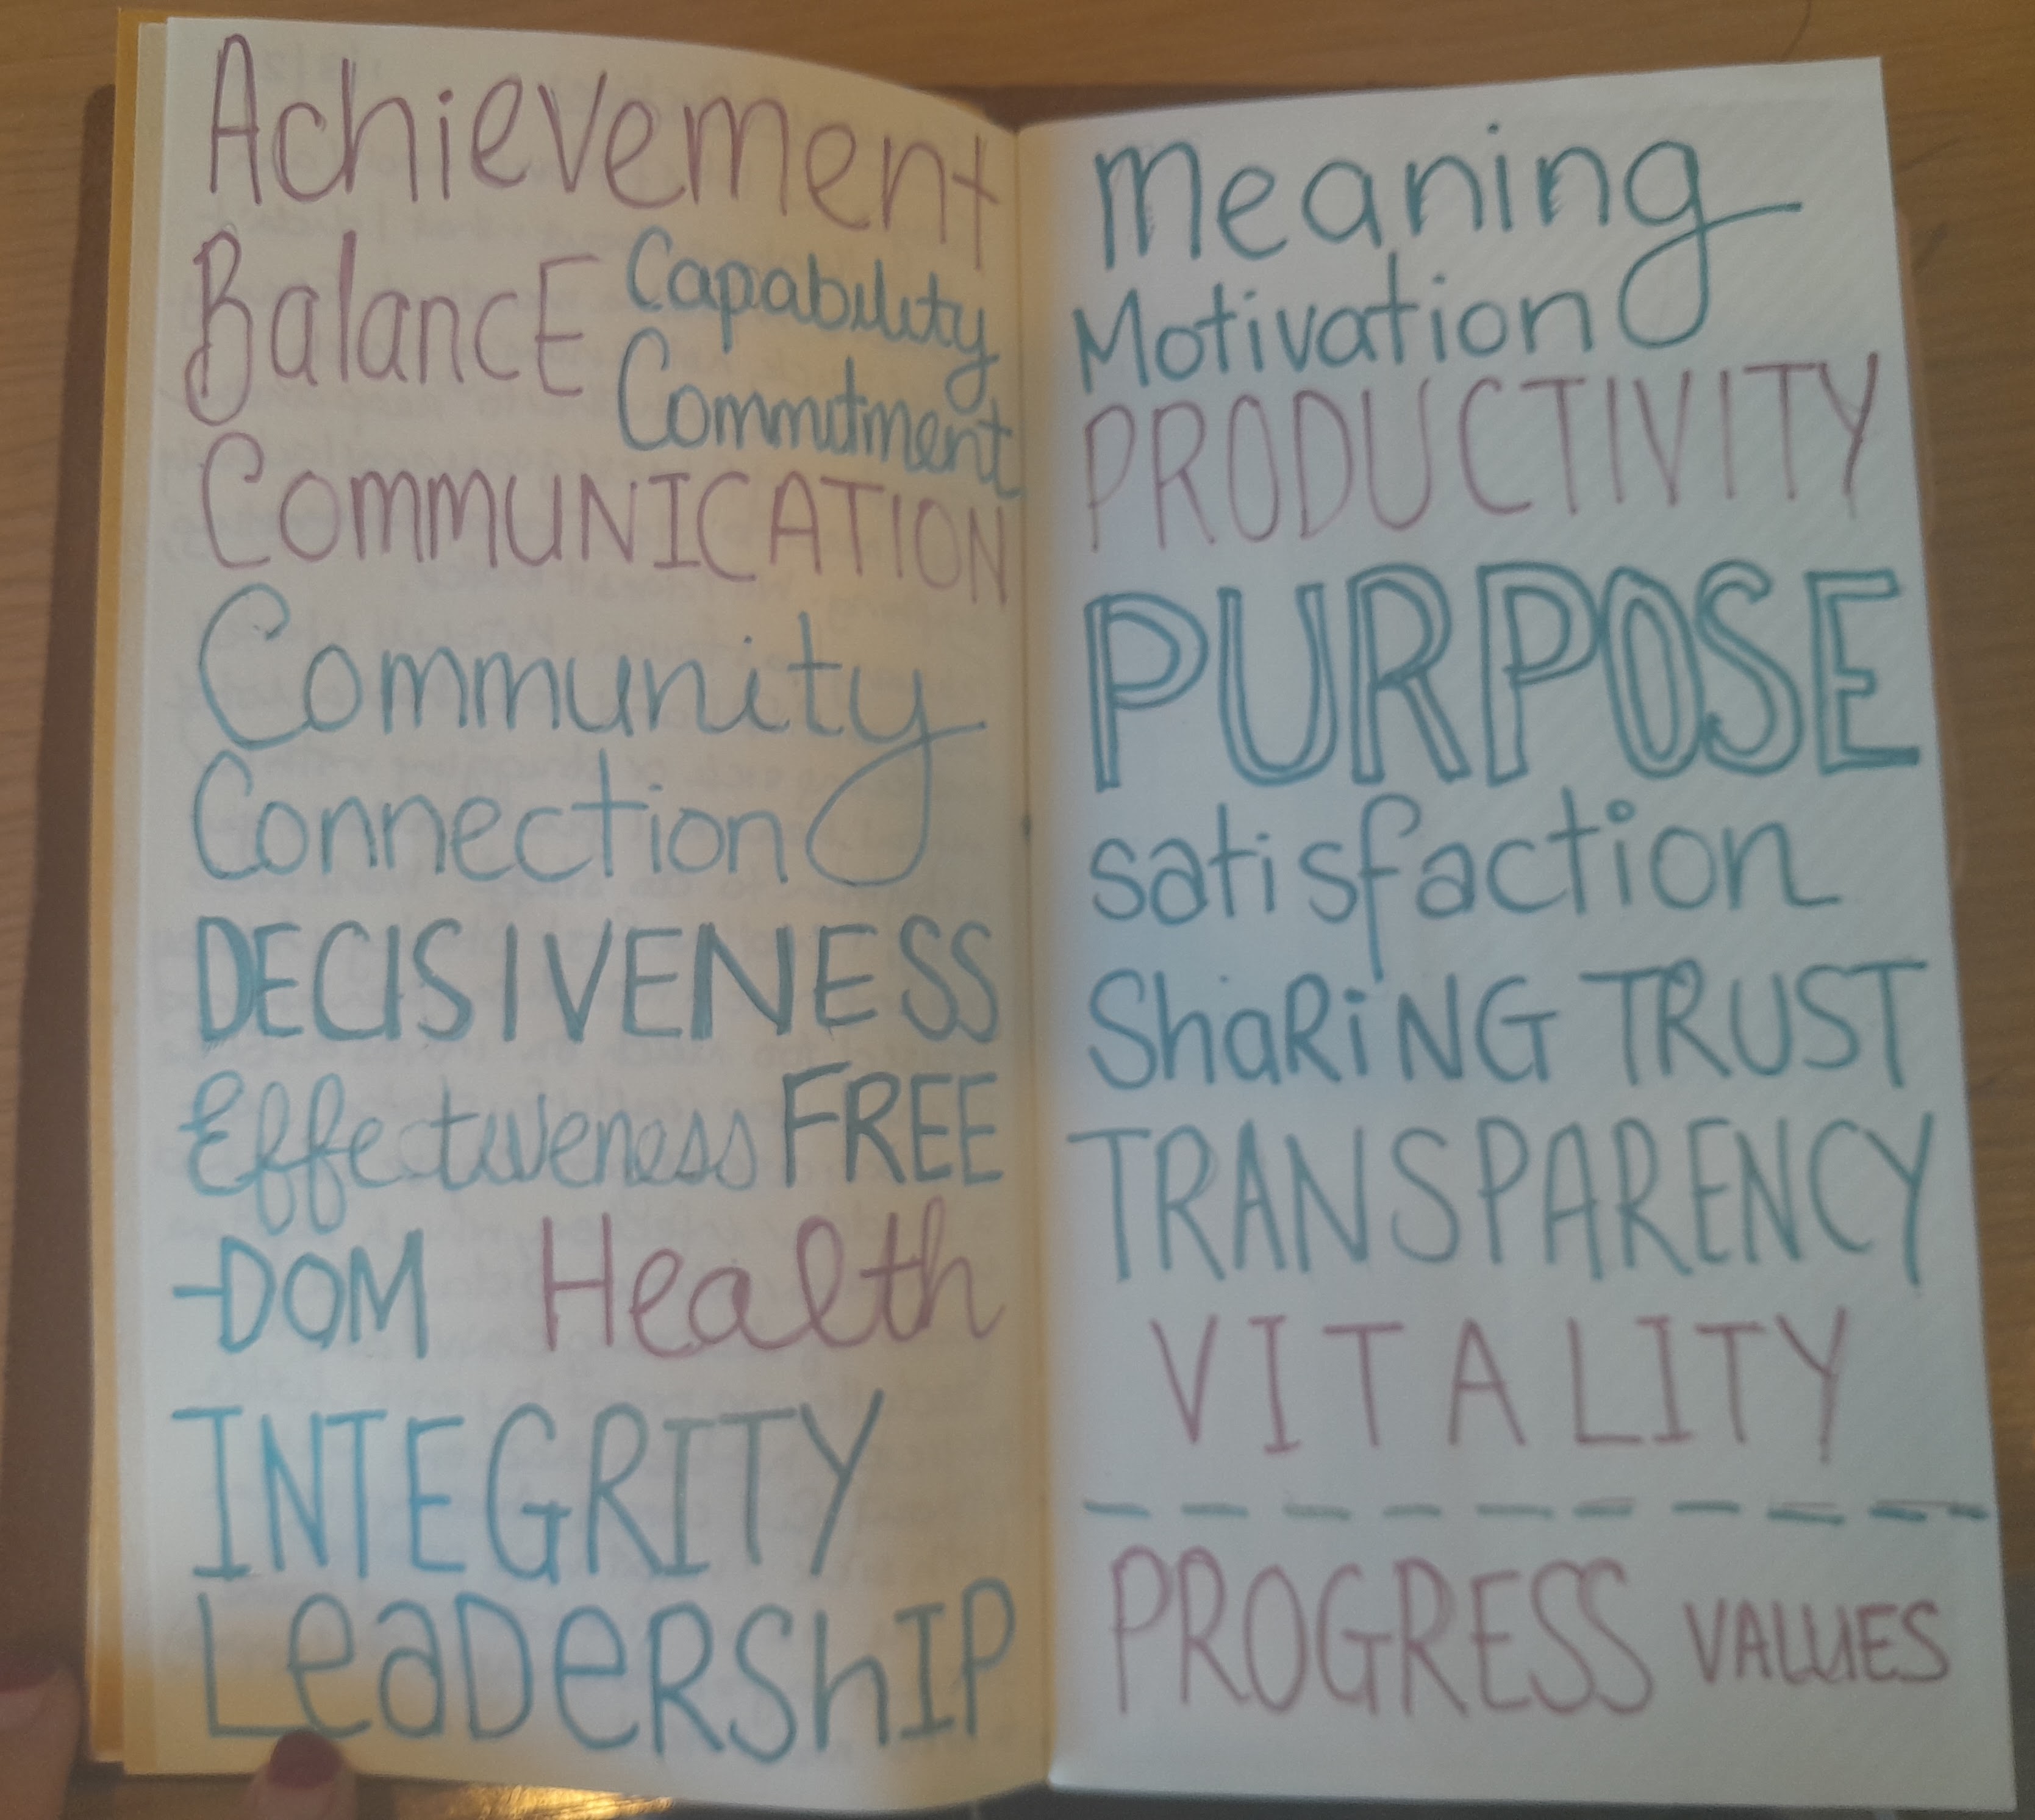 Achievement
BalancE Capability
Commitment
COmmUNICATION
Community
Connection
DECISIVENESS
Effectiveness FREE
-DOM Health
INTEGRITY
LeaDeRShIP
meaning
Motivation
PRODUCTIVITY
PURPOSE
satisfaction
ShaRiNG TRUST
TRANSPARENCY
VITALITY
PROGRESS VALUES